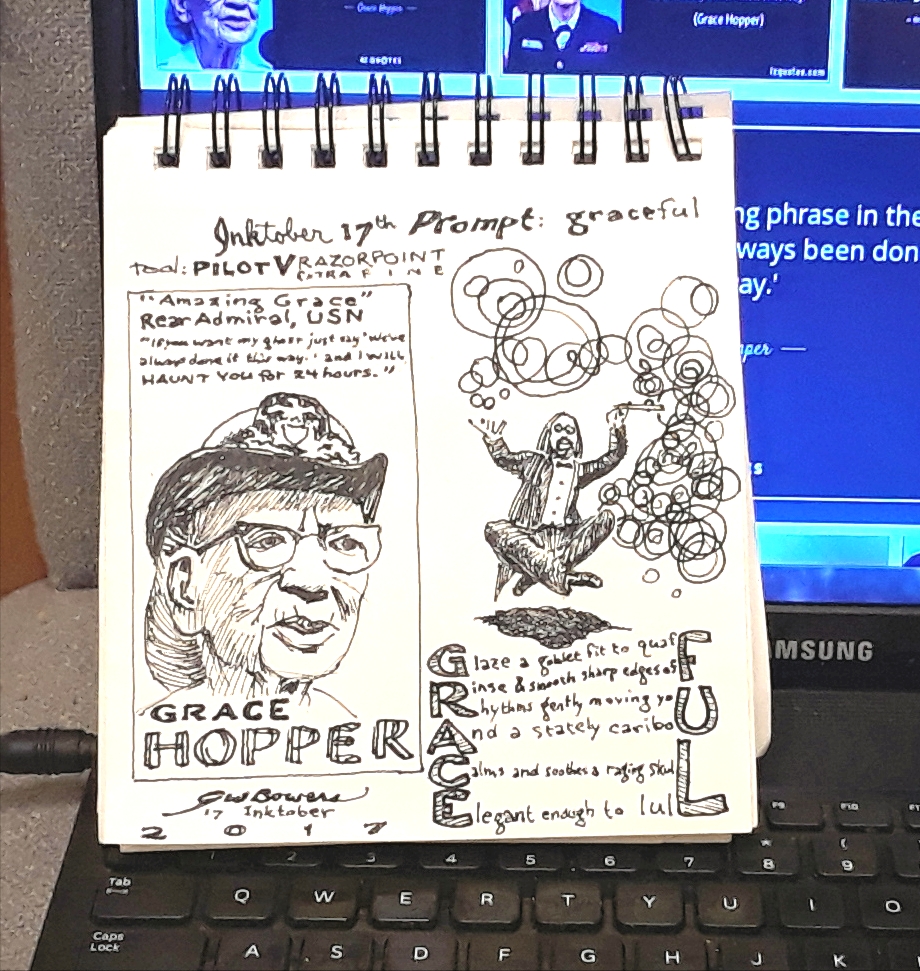 Grace Hopper
AZ QUOTES
(Grace Hopper)
izquotes.com
ng phrase in the
ways been don
ay.'
pper —
s
Inktober 17th Prompt: graceful
tool: PILOT V RAZORPOINT
EXTRA FINE
"Amazing Grace"
Rear Admiral, USN
"If you want my ghost just say 'We've
always done it this way.' and I WILL
HAUNT YOU for 24 hours."
GRACE
HOPPER
GW Bowers
'17 Inktober
2017
Glaze a goblet fit to quaF
Rinse & smooth sharp edges of
Rhythms gently moving yoU
And a stately caribo
Calms and soothes a raging skuL
Elegant enough to lulL
SAMSUNG
F9
F10
1 2 3 4 5 6 7 * 8 ( 9
Tab Q W E R T Y U I O
Caps Lock A S D F G H J K